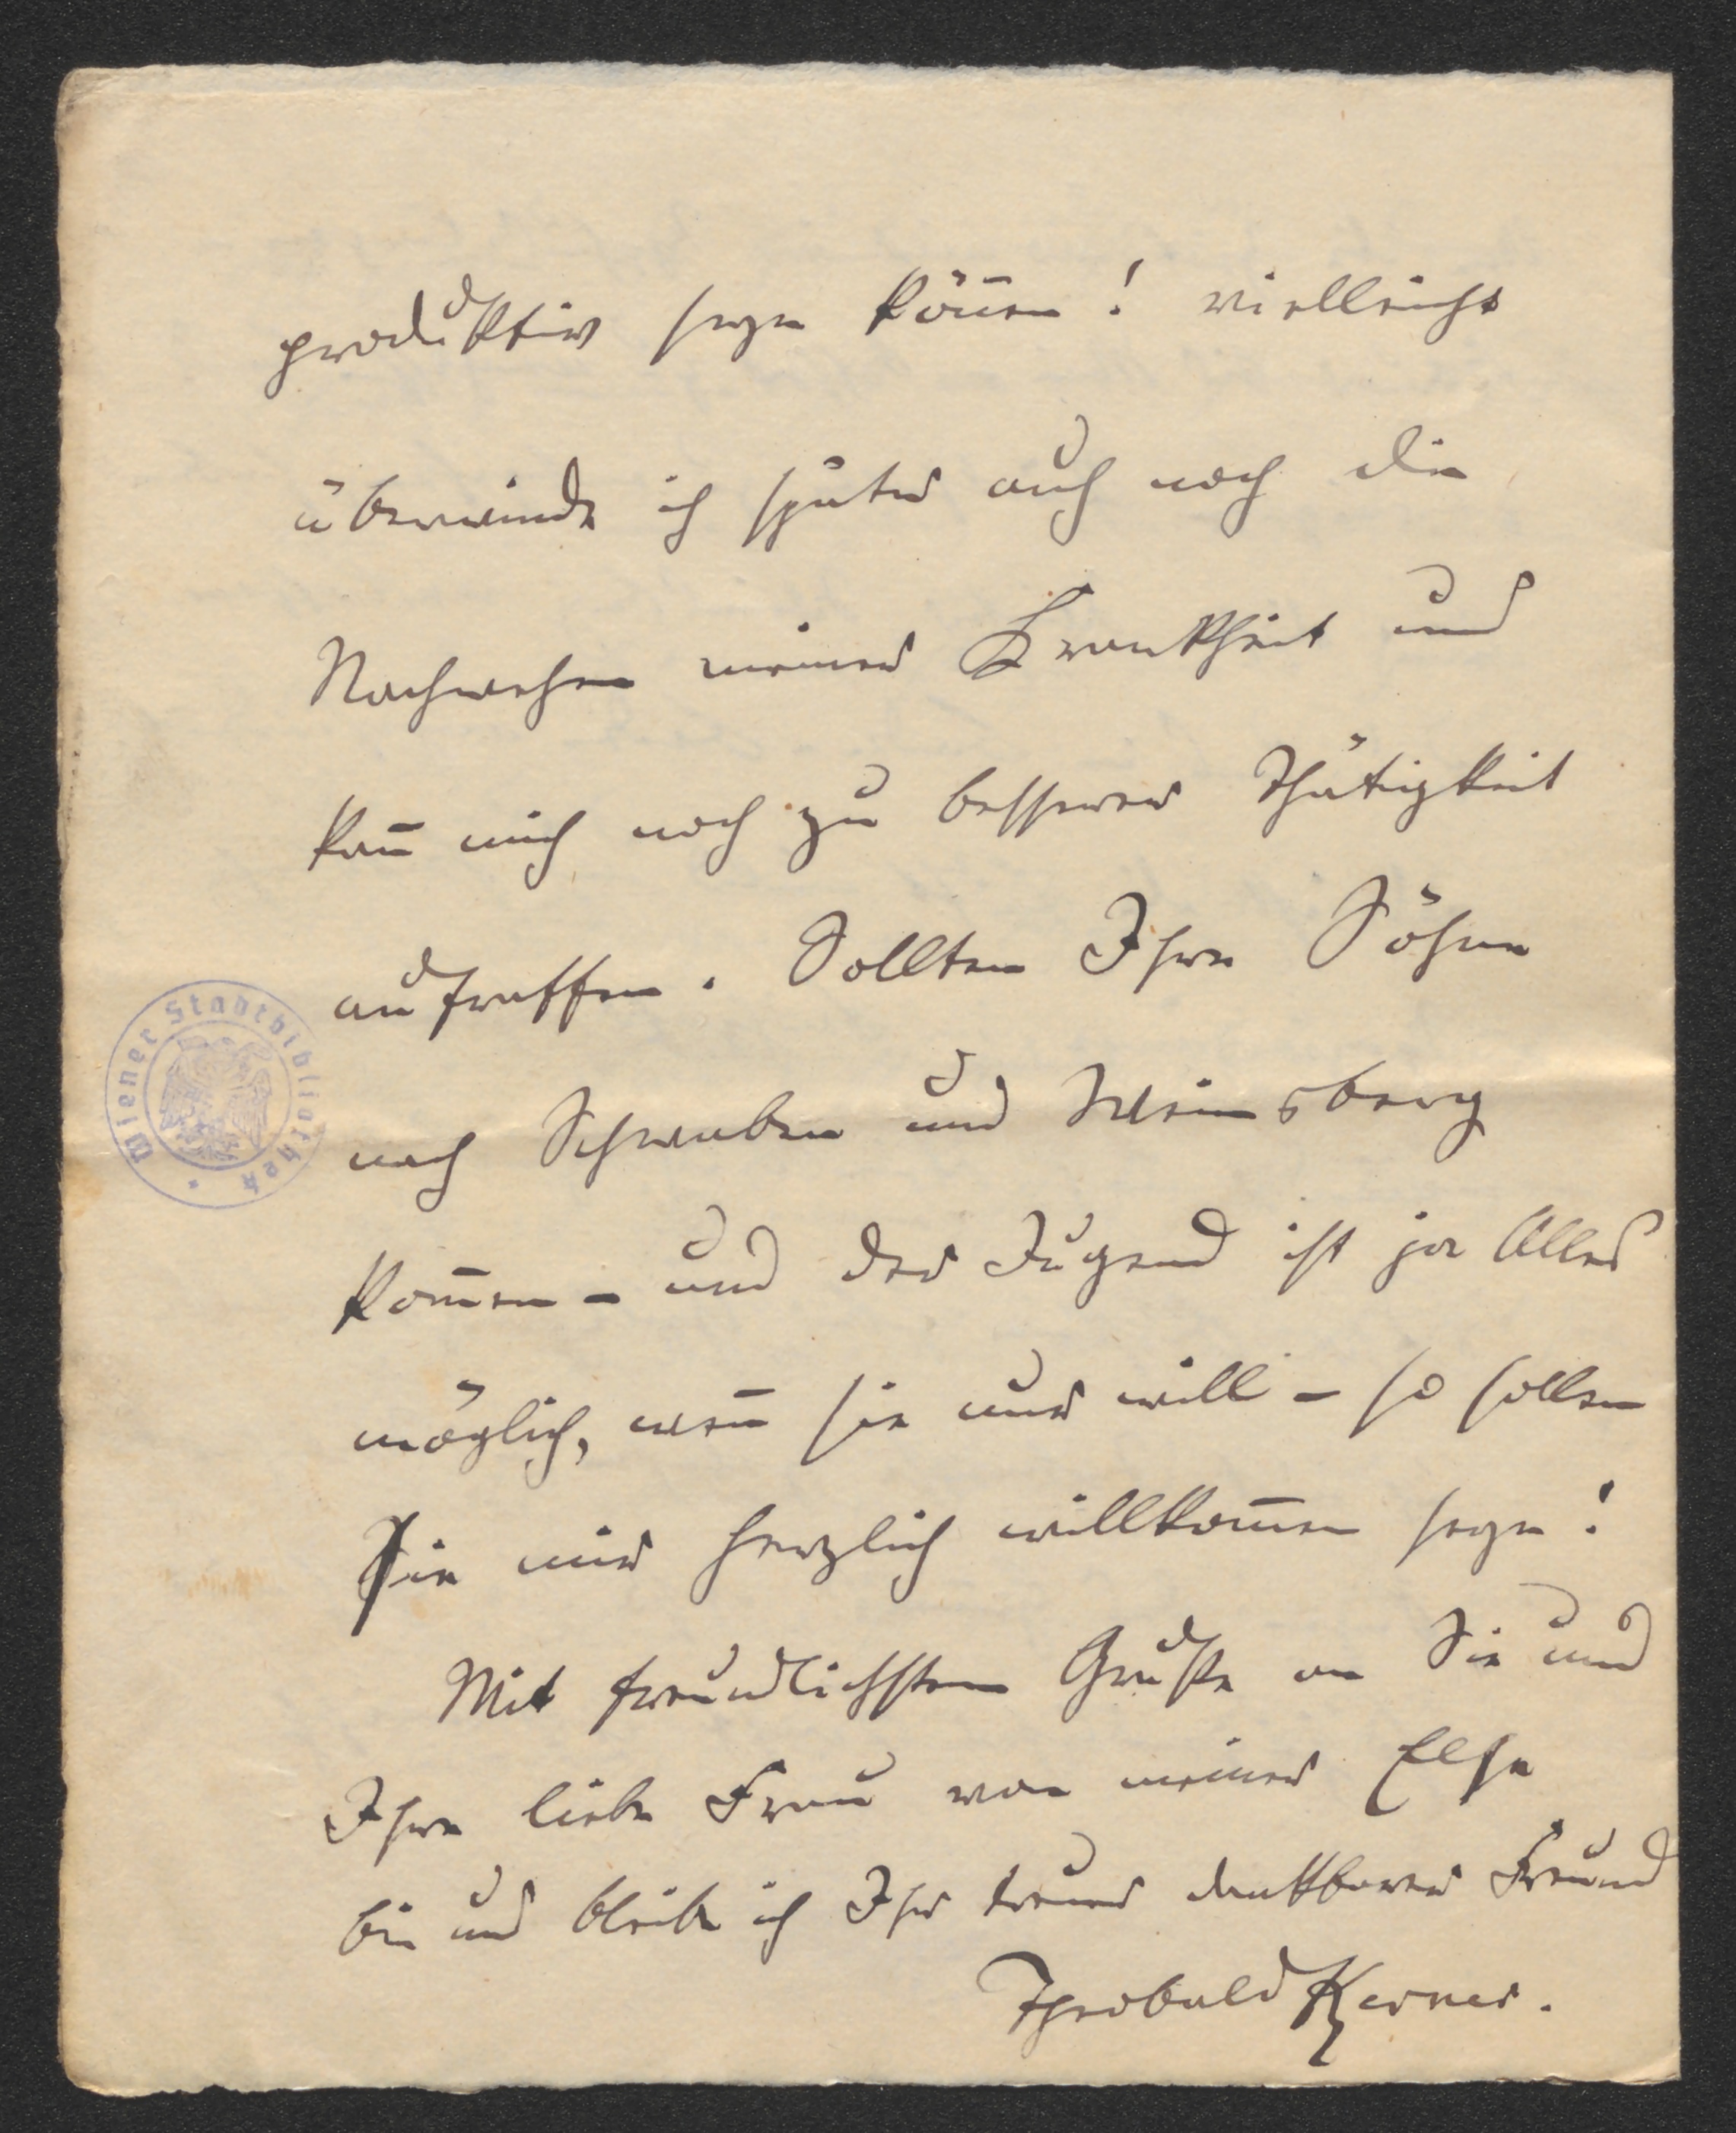 produktiv seyn kön̄en! vielleicht
überwinde ich später auch noch die
Nachwehen meiner Krankheit und
kan̄ mich noch zu besserer Thätigkeit
aufraffen. Sollten Ihre Söhne
nach Schwaben und Weinsberg
kom̄en – und der Jugend ist ja Alles
möglich, wen̄ sie nur will – so sollen
Sie mir herzlich willkom̄en seyn!
Mit freundlichstem Gruße an Sie und
Ihre liebe Frau von meiner Else
bin und bleibe ich Ihr treuer dankbarer Freund
Theobald Kerner.
Wiener Stadtbibliothek